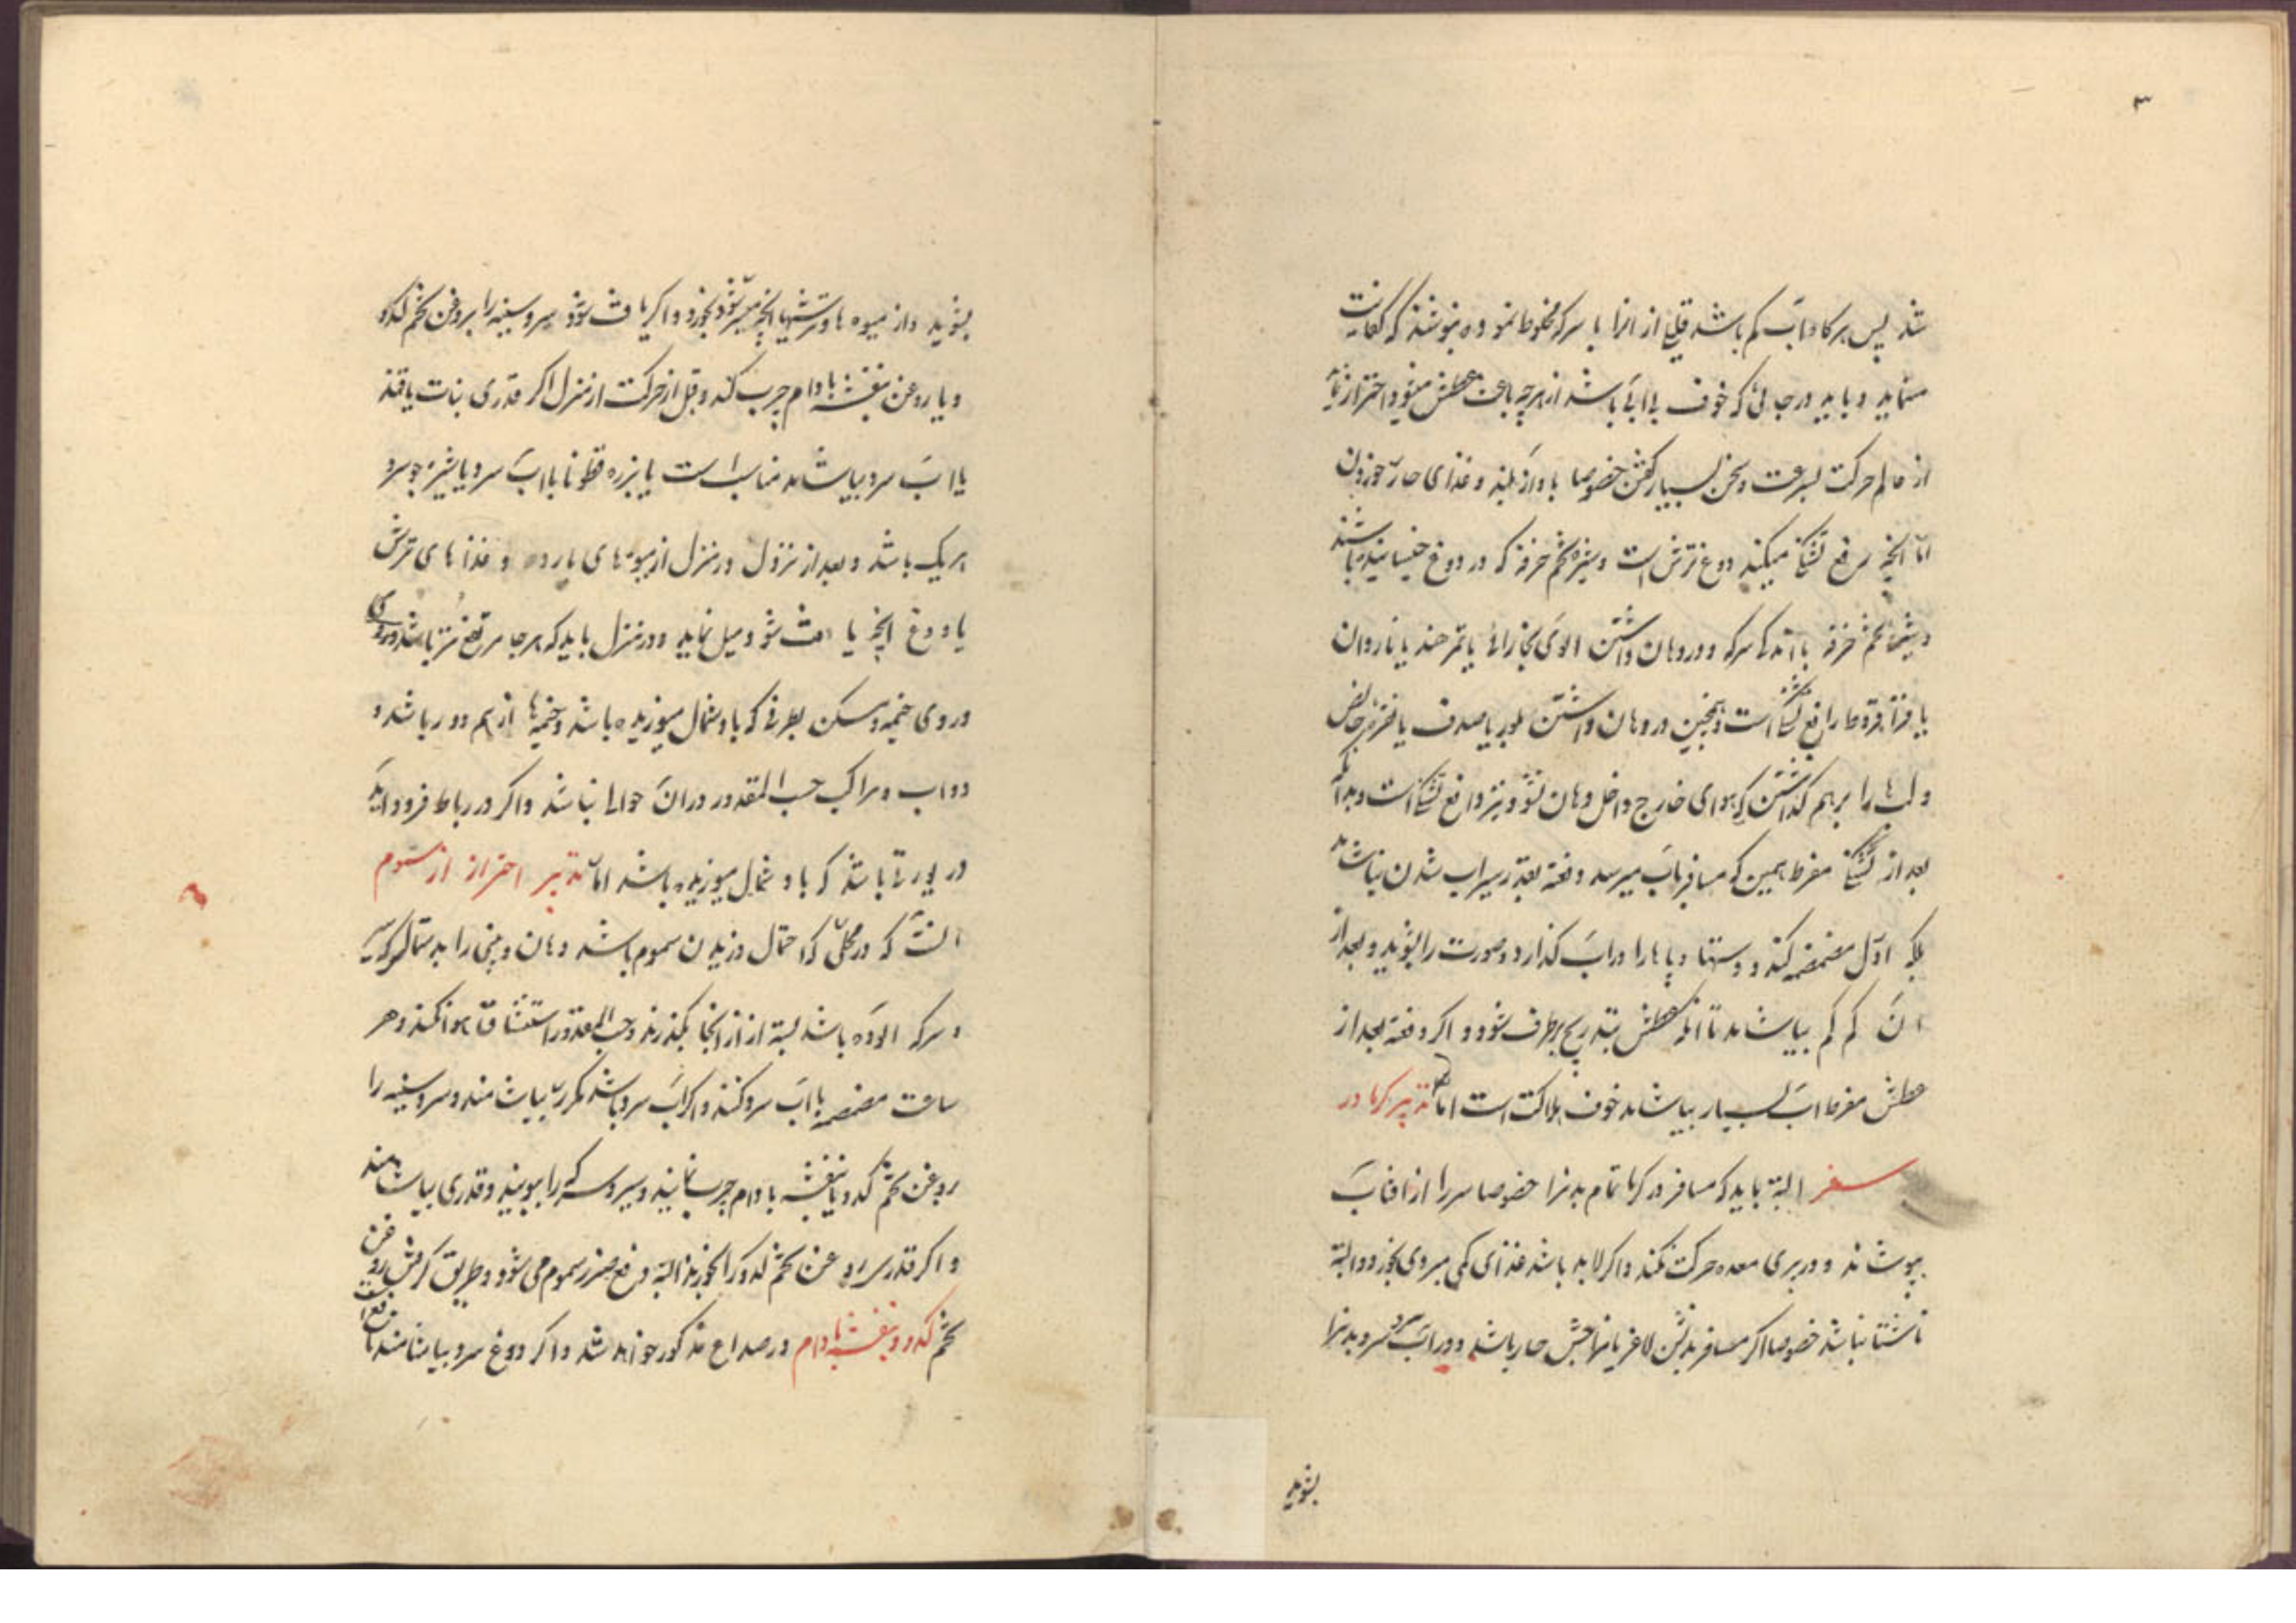 ۳
شد پس هرکاه اب کم باشد قلیلی از انرا با سرکه مخلوط نموده بنوشند که کفایت
مینماید و باید در جائی که خوف بی ابی باشد از هرچه باعث عطش میشود احتراز نمایند
از عالم حرکت بسرعت و سخن بسیار کفتن خصوصا باواز بلند و غذای حار خوردن
اما انچه رفع تشنکی میکند دوغ ترش است و شیره تخم خرفه که در دوغ خیسانیده باشند
و شیره تخم خرفه با اندکی سرکه و در دهان داشتن الوی بخارائی یا تمر هندی یا ناردان
یا قراقروط رافع تشنکی است و همچنین در دهان داشتن بلور یا صدف یا نقره خالص
و لبها را برهم کذاشتن که هوای خارج داخل دهان نشود نیز دافع تشنکی است و بدانکه
بعد از تشنکی مفرط همین که مسافر باب میرسد دفعة بقدر سیراب شدن نیاشامد
بلکه اول مضمضه کند و دستها و پاها را در اب کذارد و صورت را بشوید و بعد از
ان کم کم بیاشامد تا انکه عطش بتدریج برطرف شود و اکر دفعة بعد از
عطش مفرط اب بسیار بیاشامد خوف هلاکت است اما تدبیر کرما در
سفر البته باید که مسافر در کرما تمام بدنرا خصوصا سر را از افتاب
بپوشاند و در پری معده حرکت نکند و اکر لابد باشد غذای کمی میبردی بخورد و البته
ناشتا نباشد خصوصا اکر مسافر بدنش لاغر یا مزاجش حار باشد و در اب سرد سر و بدنرا
بشوید
بشوید و از میوه ها و ترشیها انچه میسر شود بخورد و اکر یافت شود سر و سینه را بروغن تخم کدو
و یا روغن بنفشه بادام چرب کند و قبل از حرکت از منزل اکر قدری نبات یا قند
با اب سرد بیاشامد مناسب است یا بزره قطونا با اب سرد یا شیره جو سرد
هریک باشد و بعد از نزول در منزل از میوه های بارده و غذاهای ترش
یا دوغ انچه یافت شود میل نماید و در منزل باید که هرجا مرتفع تر باشد فرود اید
و روی خیمه و مسکن بطرفی که باد شمال میوزیده باشد و خیمها از هم دور باشد و
دواب و مراکب حسب المقدور در ان حوالی نباشد و اکر در رباط فرود اید
در یورتی باشد که باد شمال میوزیده باشد اما تدبیر احتراز از سموم
انست که در محلی که احتمال وزیدن سموم باشد دهان و بینی را بدستمالی که بسیر
و سرکه الوده باشد بسته از انجا بکذرند و حسب المقدور استنشاق هوا نکنند و هر
ساعت مضمضه با اب سرد کنند و اکر اب سرد باشد مکرر بیاشامند و سر و سینه را
بروغن تخم کدو یا بنفشه بادام چرب نمایند و سیر و سرکه را ببویند و قدری بیاشامند
و اکر قدری روغن تخم کدو را بخورند البته دفع ضرر سموم می شود و طریق کرفتن روغن
تخم کدو و بنفشه بادام در صداع مذکور خواهد شد و اکر دوغ سرد بیاشامند نافع است